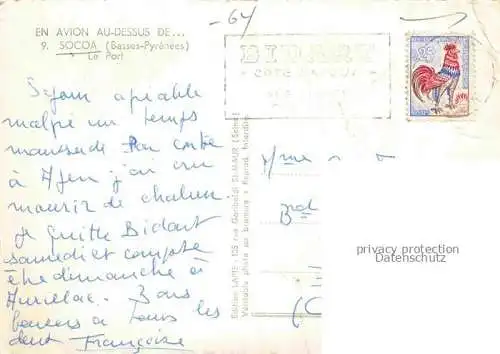 EN AVION AU-DESSUS DE...
9. SOCOA (Basses-Pyrénées)
Le Port
-64
BIDART
CÔTE
Séjour agréable
malgré un temps
maussade Par contre
à Agen j'ai cru
mourir de chaleur
Je quitte Bidart
samedi et compte
être dimanche à
Aurillac. Bons
baisers à tous les
deux Françoise
Edition LAPIE, 125 rue Garibaldi St-MAUR (Seine)
Véritable photo au bromure - Reprod. Interdite
Mme
Bd
(C
privacy protection
Datenschutz